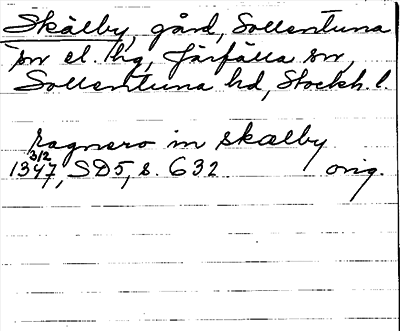 Skälby, gård, Sollentuna
sn el. thg, Järfälla sn,
Sollentuna hd, Stockh. l.
ragnero in skælby
3/2
1347, SD5, s. 632 orig.